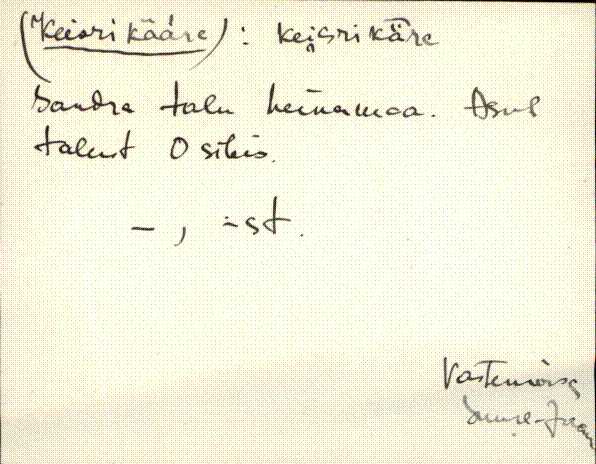 ("Keisri kääre): keisrikäre
Sandra talu heinamaa. Asub
talust O
–, -st.
Vastemõisa
Suure-Jaani